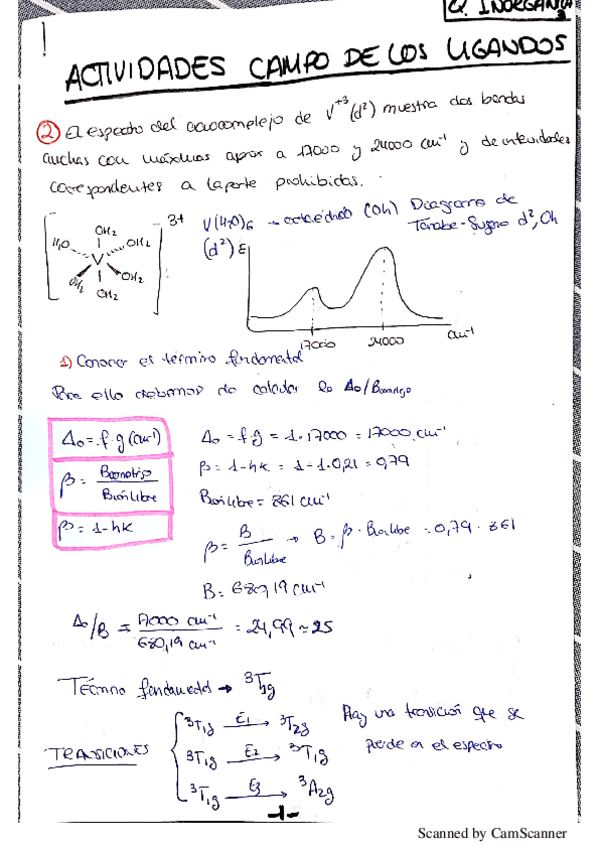 Q. INORGÁNICA
3
ACTIVIDADES CAMPO DE LOS LIGANDOS
② El espectro del acuocomplejo de V⁺³ (d²) muestra dos bandas
anchas con máximos aprox a 17000 y 24000 cm⁻¹ y de intensidades
correspondientes a Laporte prohibidas.
3+
V(H₂O)₆ → octaédrico (Oh) Diagrama de
Tanabe-Sugano d², Oh
(d²) ε
OH₂
H₂O OH₂
V
OH₂ OH₂
OH₂
17000 24000 cm⁻¹
1) Conocer el término fundamental
Para ello debemos de calcular la Δo/Bcomplejo
Δo = f·g (cm⁻¹)
β = Bcomplejo / Bión libre
β = 1-hk
Δo = f·g = 1·17000 = 17000 cm⁻¹
β = 1-hk = 1-1·0,21 = 0,79
Bión libre = 861 cm⁻¹
β = B / Bión libre → B = β · Bión libre = 0,79 · 861
B = 680,19 cm⁻¹
Δo/B = 17000 cm⁻¹ / 680,19 cm⁻¹ = 24,99 ≈ 25
Término fundamental → ³T₁g
TRANSICIONES
³T₁g E₁→ ³T₂g
³T₁g E₂→ ³T₁g
³T₁g E₃→ ³A₂g
Hay una transición que se
pierde en el espectro
-1-
Scanned by CamScanner